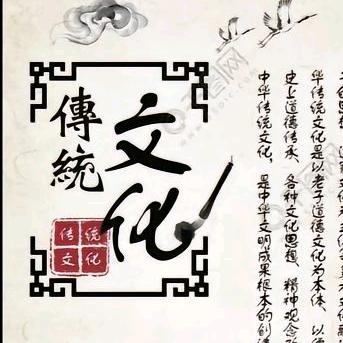 傳統
文化
传统
文化
中华传统文化，是中华文明成果根本的创造
史上道德传承、各种文化思想、精神观念形
华传统文化是以老子道德文化为本体、以儒